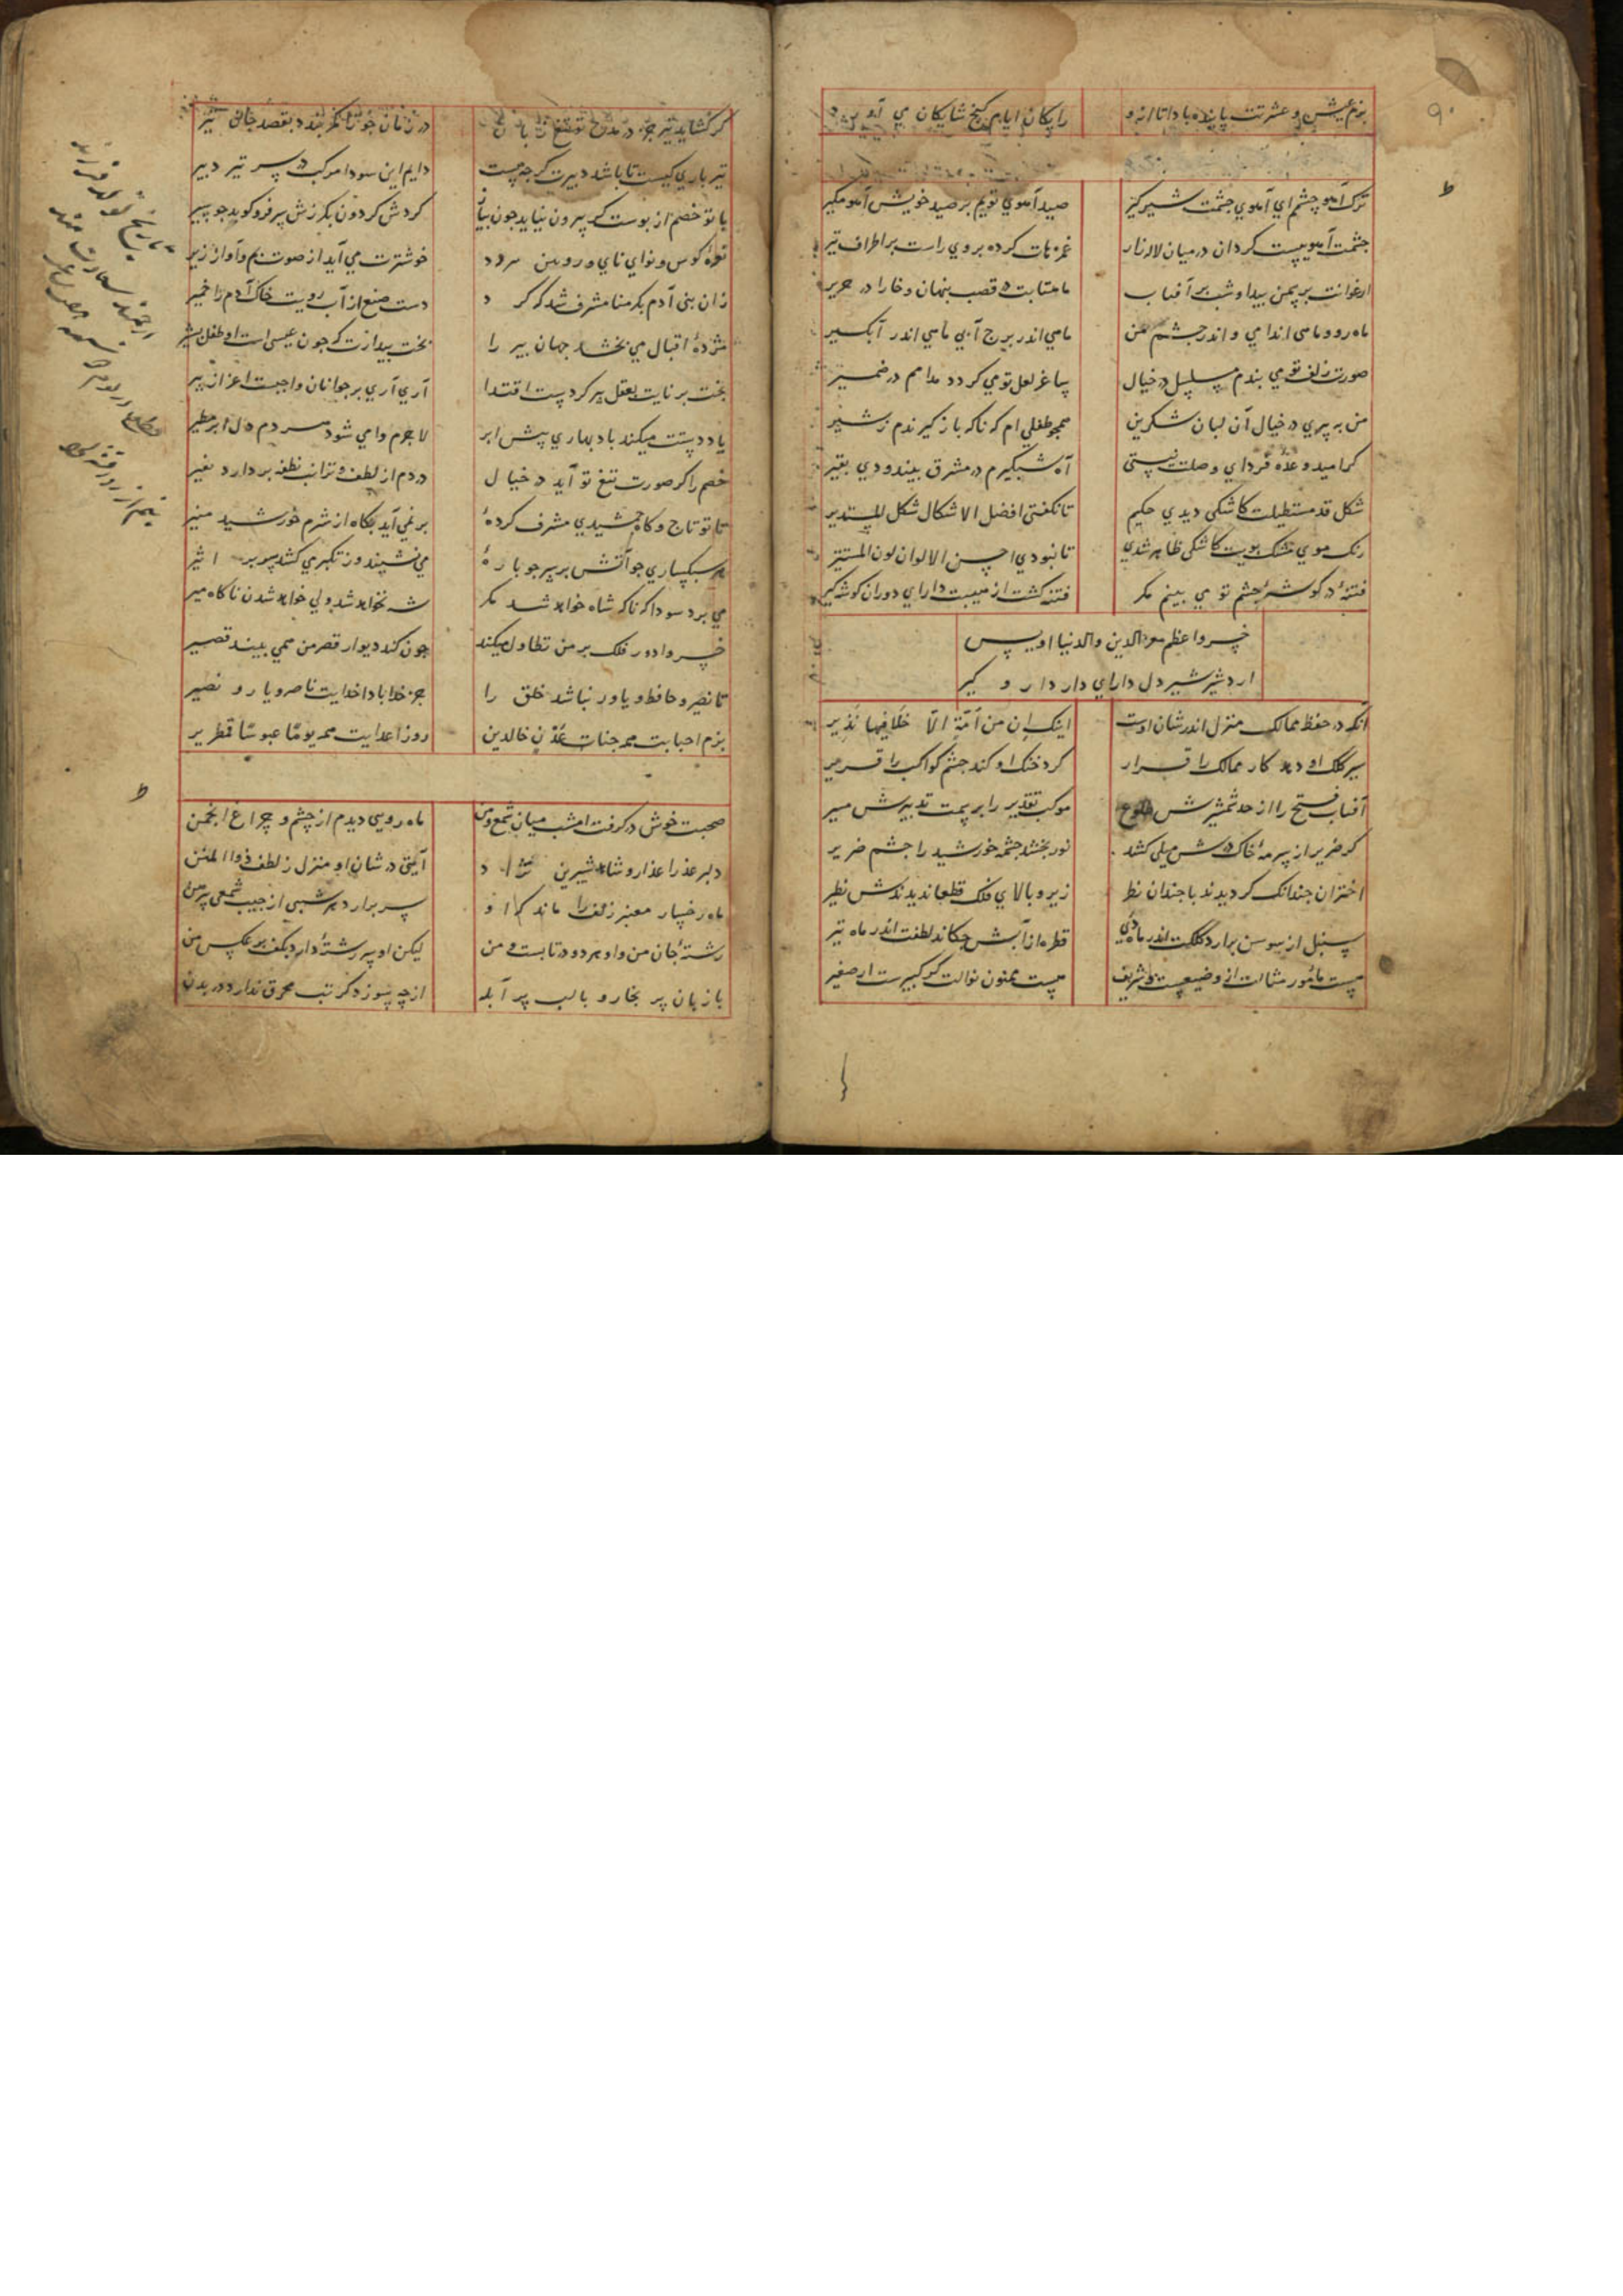 بزم عیش و عشرت پاینده بادا تا ابد
رایکان ایام کنج شایکان می آورد
ترک آهو چشم ای آهوی چشمت شیر کیر
صید آهوی توییم بر صید خویش آهو مکیر
چشمت آهوییست کردان در میان لاله زار
غمزه ات کرده بروی راست بر اطراف تیر
ارغوانت بر سمن پیدا و شب بر آفتاب
ماهتابت در قصب پنهان و خارا در حریر
ماه رو و ماهی اندامی و اندر چشم من
ماهی اندر برج آبی ماهی اندر آبکیر
صورت زلف تو می بندم مسلسل در خیال
ساغر لعل تو می کردد مدامم در ضمیر
من به پیری در خیال آن لبان شکرین
همچو طفلی ام که ناکه باز کیرندم ز شیر
کر امید وعده فردای وصلت نیستی
آه شبکیرم در مشرق بیندودی بقیر
شکل قد مستطیلت کاشکی دیدی حکیم
تا نکفتی افضل الاشکال شکل المستدیر
رنک موی مشک بویت کاشکی ظاهر شدی
تا نبودی احسن الالوان لون المستنیر
فتنه در کوشه چشم تو می بینم مکر
فتنه کشت از هیبت دارای دوران کوشه کیر
خسرو اعظم معز الدین والدنیا اویس
اردشیر شیر دل دارای دار دار و کیر
آنکه در حفظ ممالک منزل اندر شان اوست
اینک ان من امة الا خلا فیها نذیر
سیر کلک او دهد کار ممالک را قرار
کرد خنک او کند چشم کواکب را قریر
آفتاب فتح را از حد شمشیرش طلوع
موکب تقدیر را بر سمت تدبیرش مسیر
کر ضریر از سرمه خاک درش میلی کشد
نور بخشد چشمه خورشید را چشم ضریر
اختران چندانک کردیدند با چندان نظر
زیر و بالای فلک قطعا ندیدندش نظیر
سنبل از سوسن برارد کلکت اندر ماه دی
قطره از آتش چکاند لطفت اندر ماه تیر
هست مامور مثالت از وضیعست و شریف
هست ممنون نوالت کر کبیرست ار صغیر
کر کشاید تیر جز در مدح تو تیغ زبان
در زمان جوزا کمر بندد بقصد جان تیر
تیر باری کیست تا باشد دبیرت کرچه هست
دایم این سودا مرکب در سر تیر دبیر
با تو خصم از پوست کر بیرون نیاید چون پیاز
کردش کردون بکرزش سر فرو کوبد چو سیر
نعره کوس و نوای نای و رویین سرود
خوشترت می آید از صوت بم و آواز زیر
زان بنی آدم بکرمنا مشرف شد که کرد
دست صنع از آب رویت خاک آدم را خمیر
مژده اقبال می بخشد جهان پیر را
بخت بیدارت که چون عیسی است او طفل بشیر
بخت برنایت بعقل پیر کردست اقتدا
آری آری بر جوانان واجبست اعزاز پیر
یاد دستت میکند باد بهاری پیش ابر
لاجرم وا می شود هر دم دل ابر مطیر
خصم را کر صورت تیغ تو آید در خیال
در دم از لطف و ترات نطفه بردارد نفیر
تا تو تاج و کاه جمشیدی مشرف کرده
بر نمی آید بکاه از شرم خورشید منیر
هر سبکساری چو آتش بر سر چوپاره
می نشیند وز تکبر می کشد سر بر اثیر
می برد سودا که ناکه شاه خواهد شد مکر
شه نخواهد شد ولی خواهد شدن ناکاه میر
خسروا دور فلک بر من تطاول میکند
چون کند دیوار قصر من همی بیند قصیر
تا نصیر و حافظ و یاور نباشد خلق را
جز خدا بادا خدایت ناصر و یار و نصیر
بزم احبابت همه جنات عدن خالدین
روز اعدایت همه یوما عبوسا قمطریر
صحبت خوش درکرفت امشب میان شمع و من
ماه رویی دیدم از چشم و چراغ انجمن
دلبر عذرا عذار و شاهد شیرین نژاد
آیتی در شان او منزل ز لطف ذو المنن
ماه رخسار معنبر زلف را ماند که او
سر برارد هر شبی از جیب شمعی پیرهن
رشته جان من و او هر دو در تابست و من
لیکن او سر رشته دارد بکف بر عکس من
با زبان پر بخار و با لب پر آبله
از چه سوزد کر تب محرق ندارد در بدن